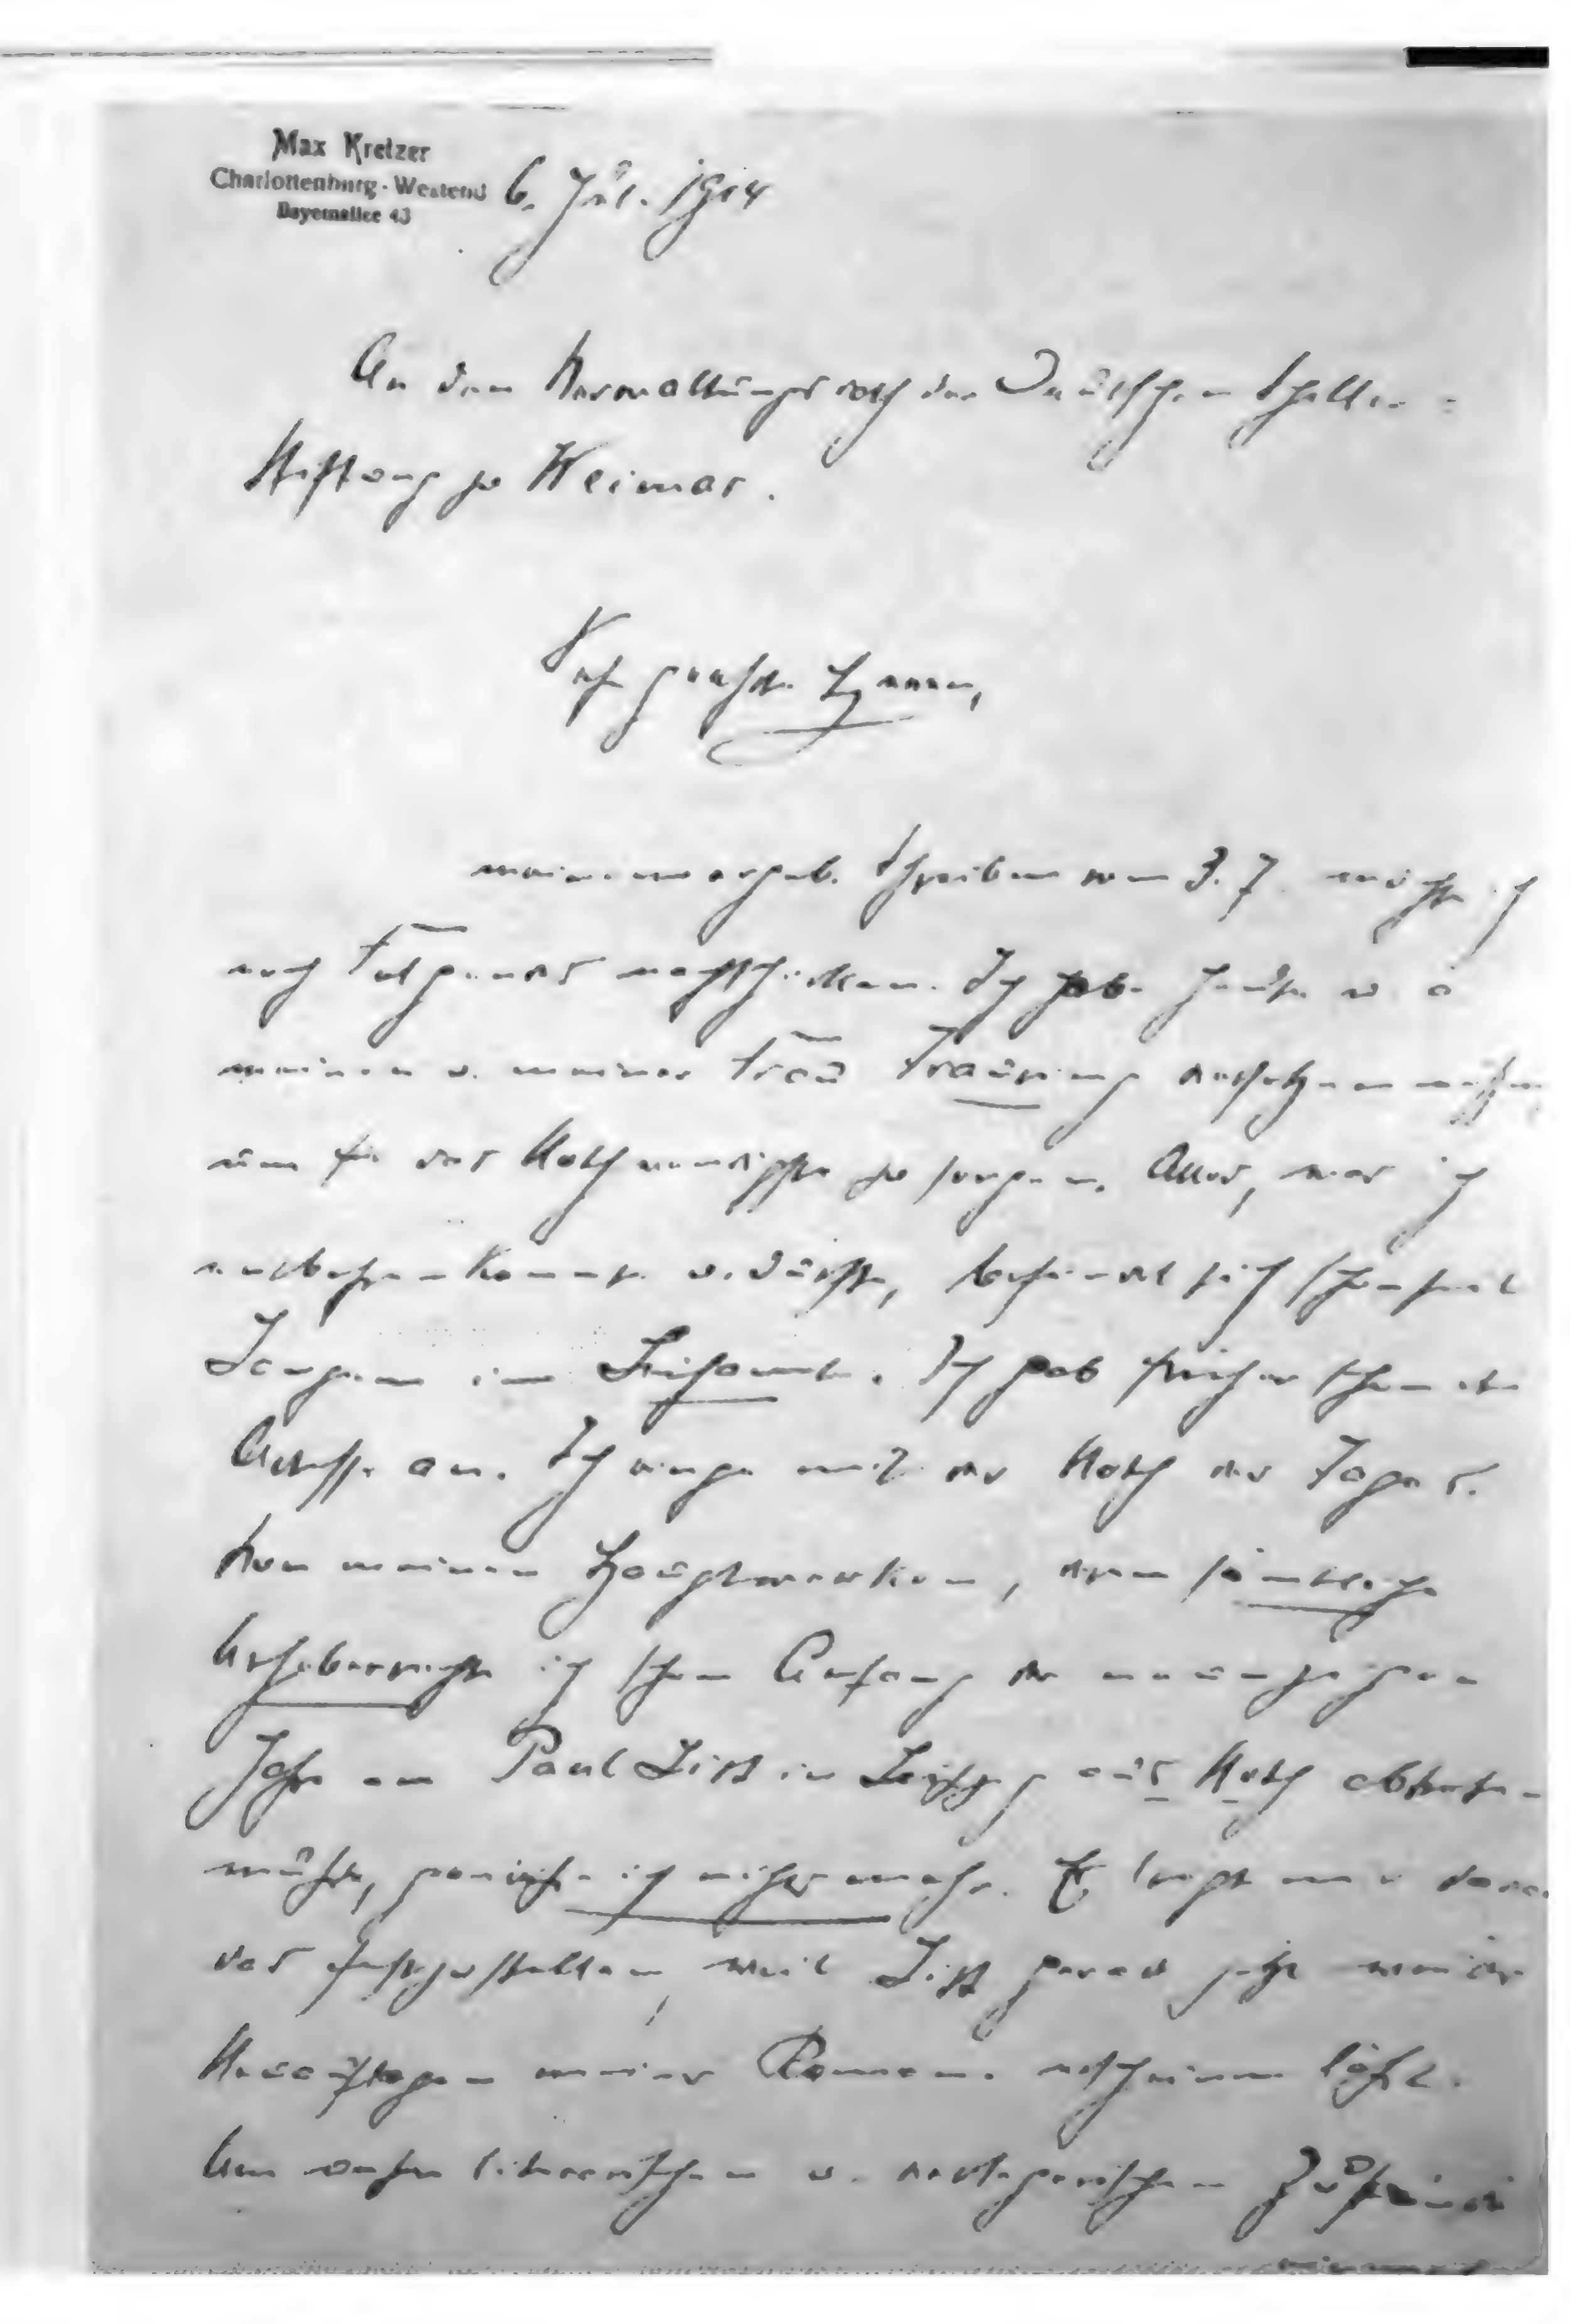 Max Kretzer
Charlottenburg-Westend
Bayernallee 43
6. Jul. 1914
An den Verwaltungsrath der Deutschen Schiller=
Stiftung zu Weimar.
Sehr geehrte Herren,
meinem ergeb. Schreiben vom 3. 7. möchte ich
noch Folgendes nachschicken. Ich habe heute
meinen u. meiner Frau Trauring versetzen müssen
um für das Nothwendigste zu sorgen. Alles, was ich
entbehren konnte u. durfte, befindet sich schon seit
Langem im Leihamt. Ich gab früher schon
an. Ich ringe mit der Noth des Tages.
Von meinen Hauptwerken, deren sämtliche
Urheberrechte ich schon Anfang der neunziger
Jahre an Paul List in Leipzig aus Noth abtreten
mußte, genieße ich nichts mehr. Es liegt mir daran
das festzustellen, weil List gerade jetzt wieder
Neuauflagen meiner Romane erscheinen läßt.
Um unsere literarischen u. verlegerischen Zustände